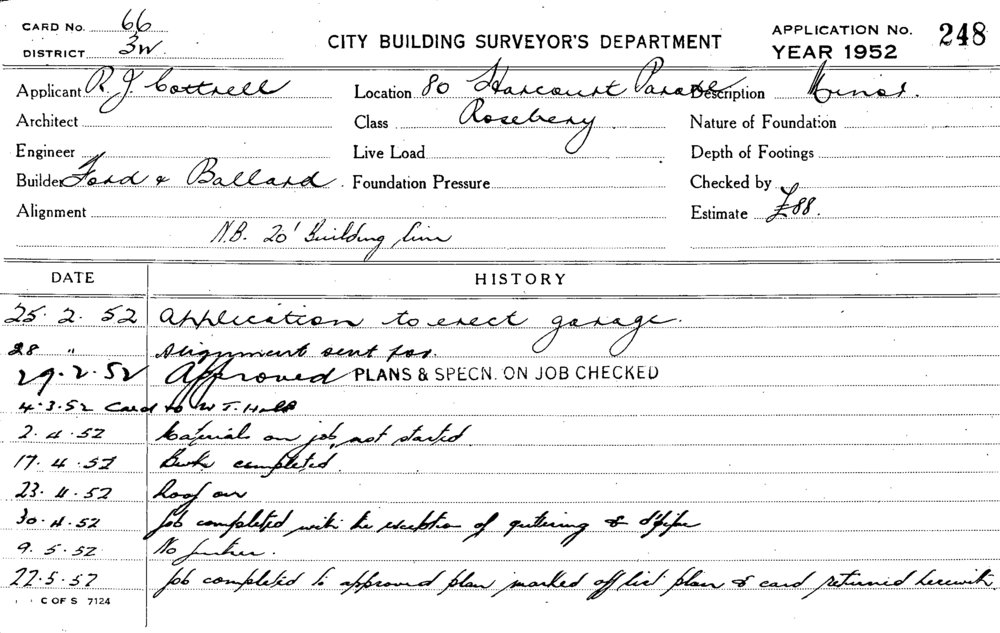 CARD No. 66
DISTRICT 3W.
CITY BUILDING SURVEYOR'S DEPARTMENT
APPLICATION No. 248
YEAR 1952
Applicant R. J. Cottrell Location 80 Harcourt Parade Description Minor.
Architect Class Rosebery Nature of Foundation
Engineer Live Load Depth of Footings
Builder Ford & Ballard. Foundation Pressure Checked by
Alignment Estimate £88.
N.B. 20' Building line
DATE HISTORY
25. 2. 52 Application to erect garage.
28 " Alignment sent for.
29. 2. 52 Approved PLANS & SPECN. ON JOB CHECKED
4. 3. 52 Card to W T. Hall
2. 4. 52 Materials on job, not started.
17. 4. 52 Bwk completed.
23. 4. 52 Roof on
30. 4. 52 Job completed with the exception of guttering & d'pipe
9. 5. 52 No further.
22. 5. 52 Job completed to approved plan marked off list plan & card returned herewith.
C OF S 7124